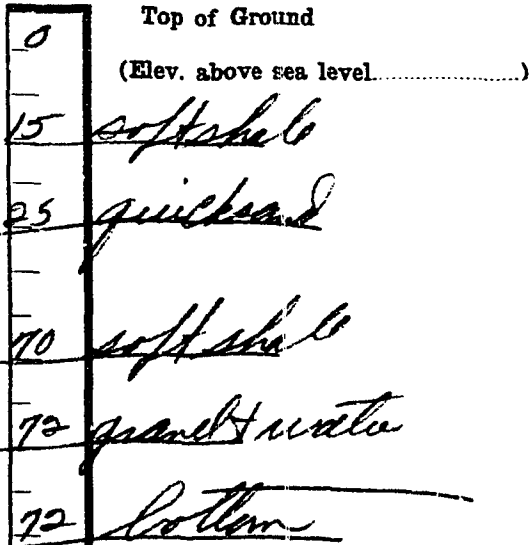 Top of Ground
0
(Elev. above sea level....................)
15 soft shale
25 quicksand
70 soft shale
72 gravel & water
72 bottom